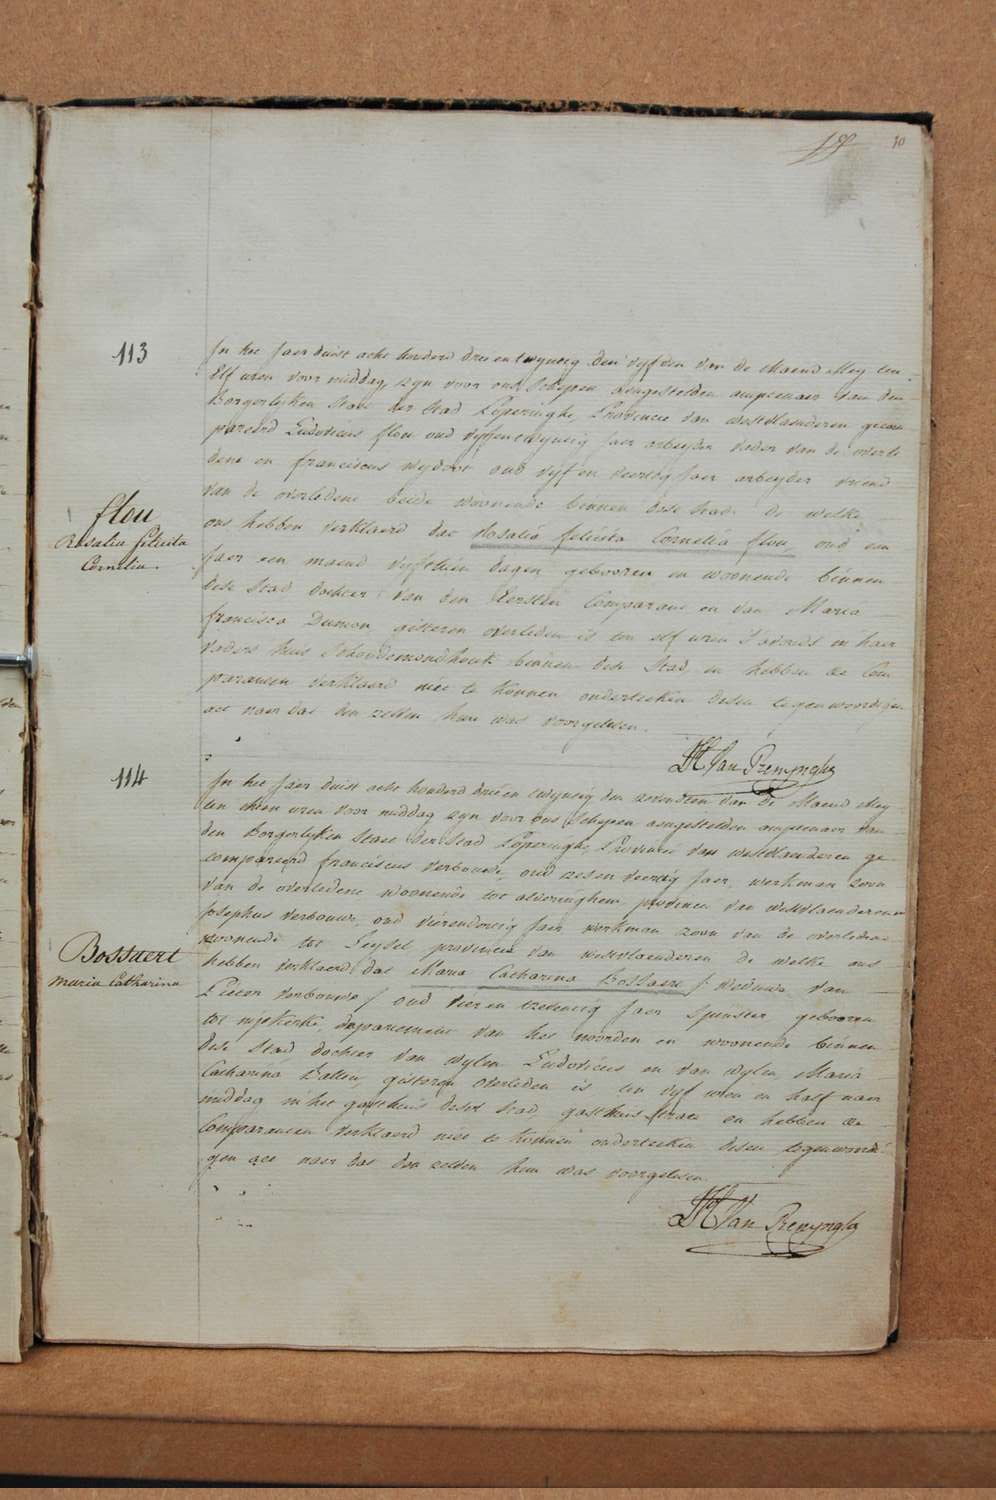 30
113
In het Jaer duist acht honderd drie en twyntig den vyfden van de Maend Mey ten
Elf uren voor middag zyn voor ons Schepen aengestelden amptenaer van den
Borgerlyken Staet der Stad Poperinghe, Provincie van westvlaenderen gecom
pareerd Ludovicus flou oud vyfentwyntig Jaer arbeyder vader van de overle
dene en franciscus oud vyf en veertig Jaer arbeyder vriend
van de overledene beide woonende binnen dese stad de welke
flou
Rosalia felicita
Cornelia.
ons hebben verklaerd dat Rosalia felicita Cornelia flou, oud een
Jaer een maend vyfthien dagen gebooren en woonende binnen
dese Stad dochter van den Eersten Comparant en van Maria
francisca Dumon gisteren overleden is ten elf uren S'avonds in haer
vaders huis binnen dese Stad, en hebben de Com
paranten verklaerd niet te konnen onderteeken desen tegenwoordigen
act naer dat den zelven hun was voorgelesen.
Van Renynghe
114
In het Jaer duist acht honderd drie en twyntig den van de Maend Mey
ten uren voor middag zyn voor ons Schepen aengestelden amptenaer van
den Borgerlyken Staet der Stad Poperinghe, Provincie van westvlaenderen ge
compareerd franciscus verbouwe, oud zesen veertig Jaer, werkman zoon
van de overledene woonende tot alveringhem, provincie van westvlaenderen en
Josephus verbouwe, oud vierendertig Jaer werkman zoon van de overledene
Bossaert
maria Catharina
woonende tot Leysel provincie van westvlaenderen de welke ons
hebben verklaerd dat Maria Catharina Bossaert / weduwe van
Pieter verbouwe / oud vier en tzeventig Jaer Spinster gebooren
tot departement van het noorden en woonende binnen
dese Stad dochter van wylen Ludovicus en van wylen Maria
Catharina gisteren overleden is ten vyf uren en half naer
middag in het gasthuis deser Stad, gasthuis straet en hebben de
Comparanten verklaerd niet te konnen onderteeken desen tegenwoordi
gen act naer dat den zelven hun was voorgelesen
Van Renynghe